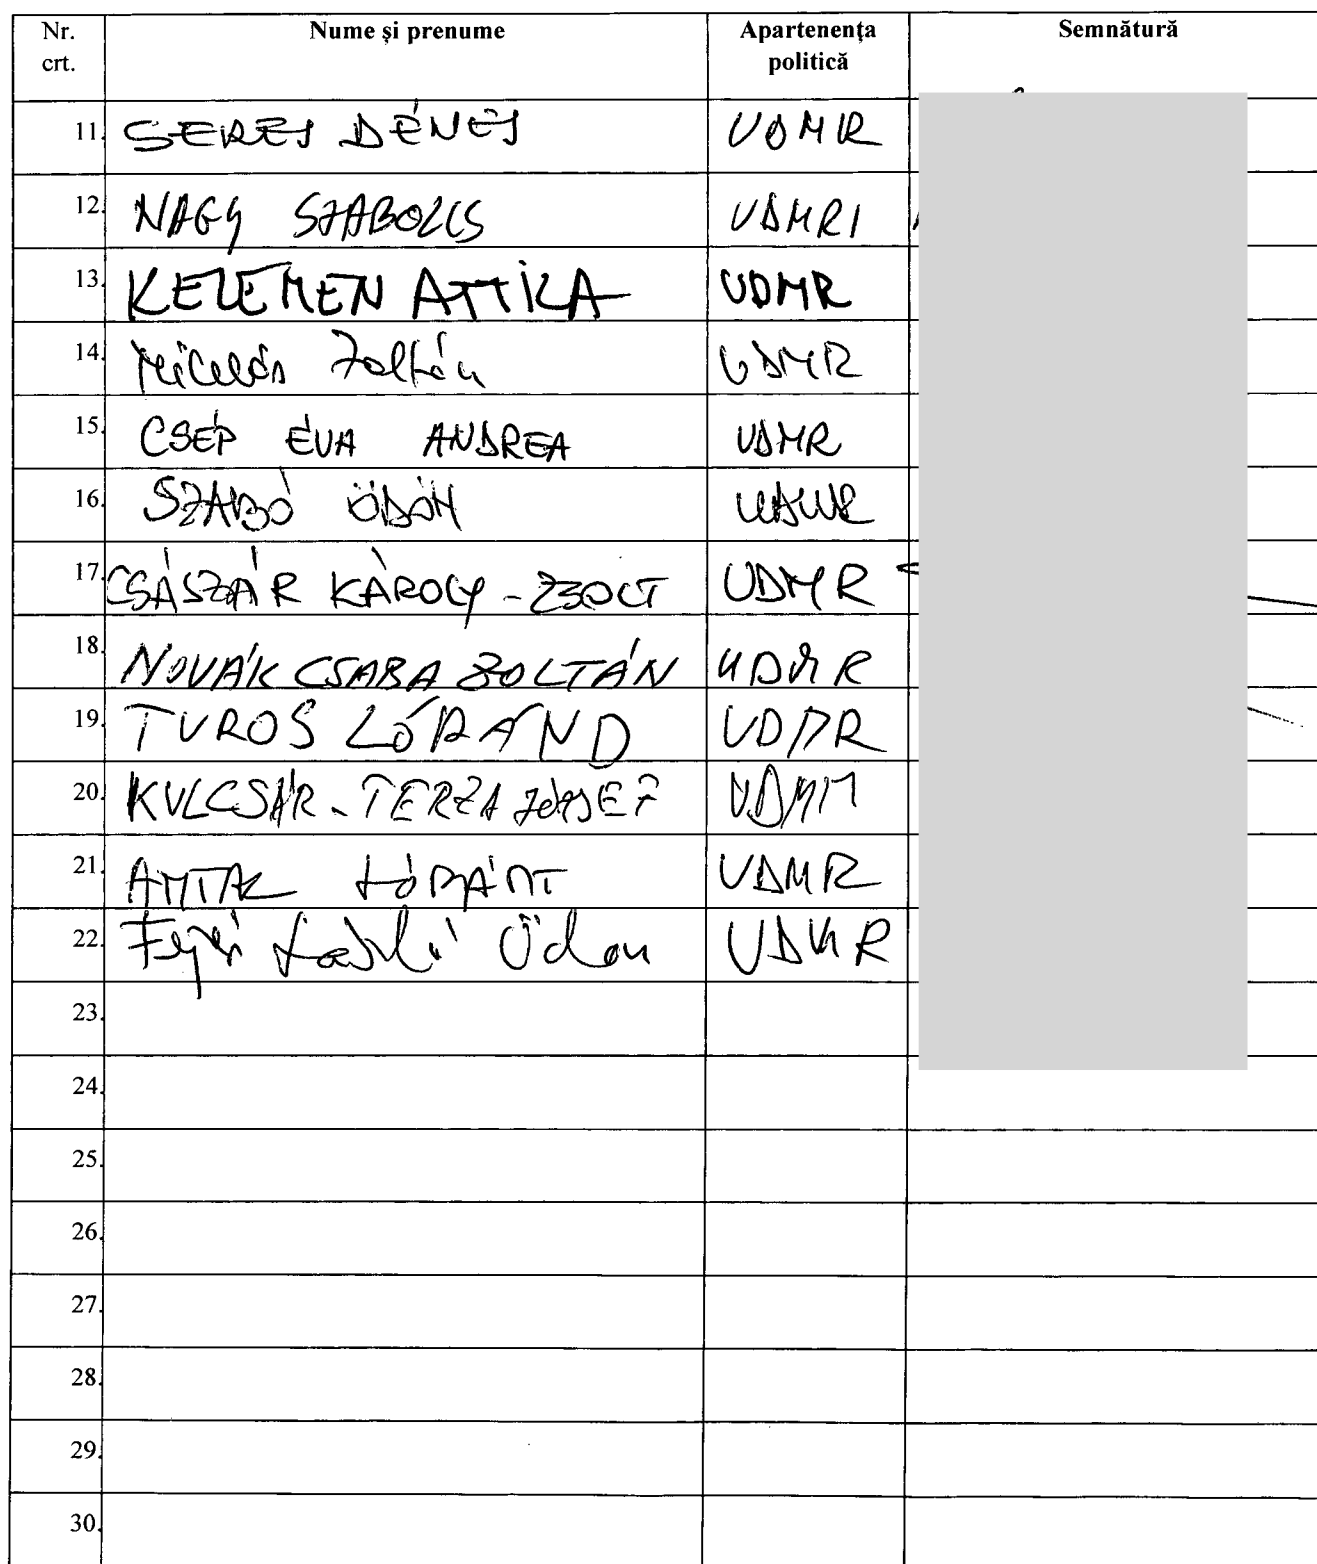 Nr. crt. Nume și prenume Apartenența politică Semnătură
11. SERES DÉNES UDMR
12. NAGY SZABOLCS UDMR
13. KELEMEN ATTILA UDMR
14. Miklós Zoltán UDMR
15. CSÉP ÉVA ANDREA UDMR
16. SZABÓ ÖDÖN UDMR
17. CSÁSZÁR KÁROLY-ZSOLT UDMR
18. NOVÁK CSABA ZOLTÁN UDMR
19. TUROS LÓRÁND UDMR
20. KULCSÁR-TERZA JÓZSEF UDMR
21. ANTAL LÓRÁNT UDMR
22. Fejér László Ödön UDMR
23.
24.
25.
26.
27.
28.
29.
30.